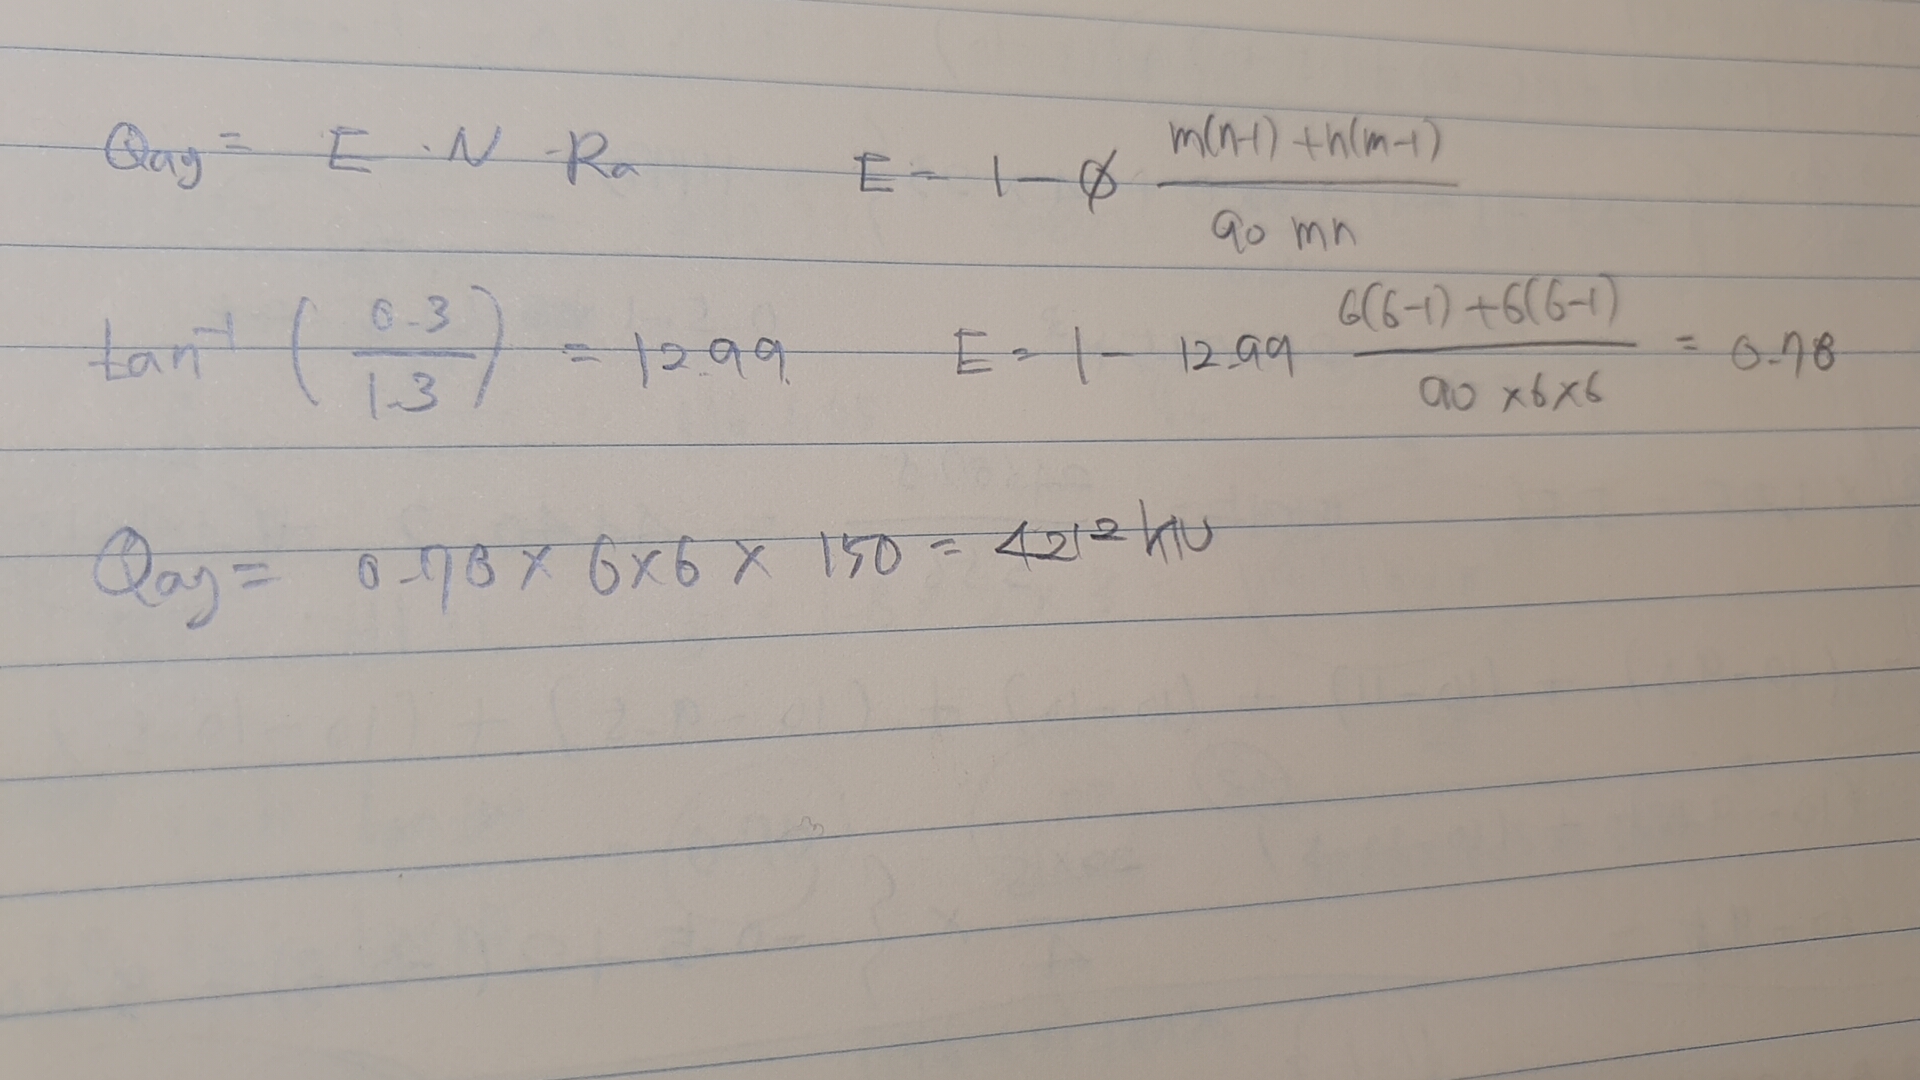 Qag = E · N · Ra    E = 1 - ø (m(n-1) + n(m-1)) / (90 mn)
tan⁻¹ (0.3 / 1.3) = 12.99    E = 1 - 12.99 (6(6-1) + 6(6-1)) / (90 × 6 × 6) = 0.78
Qag = 0.78 × 6 × 6 × 150 = 4212 kN